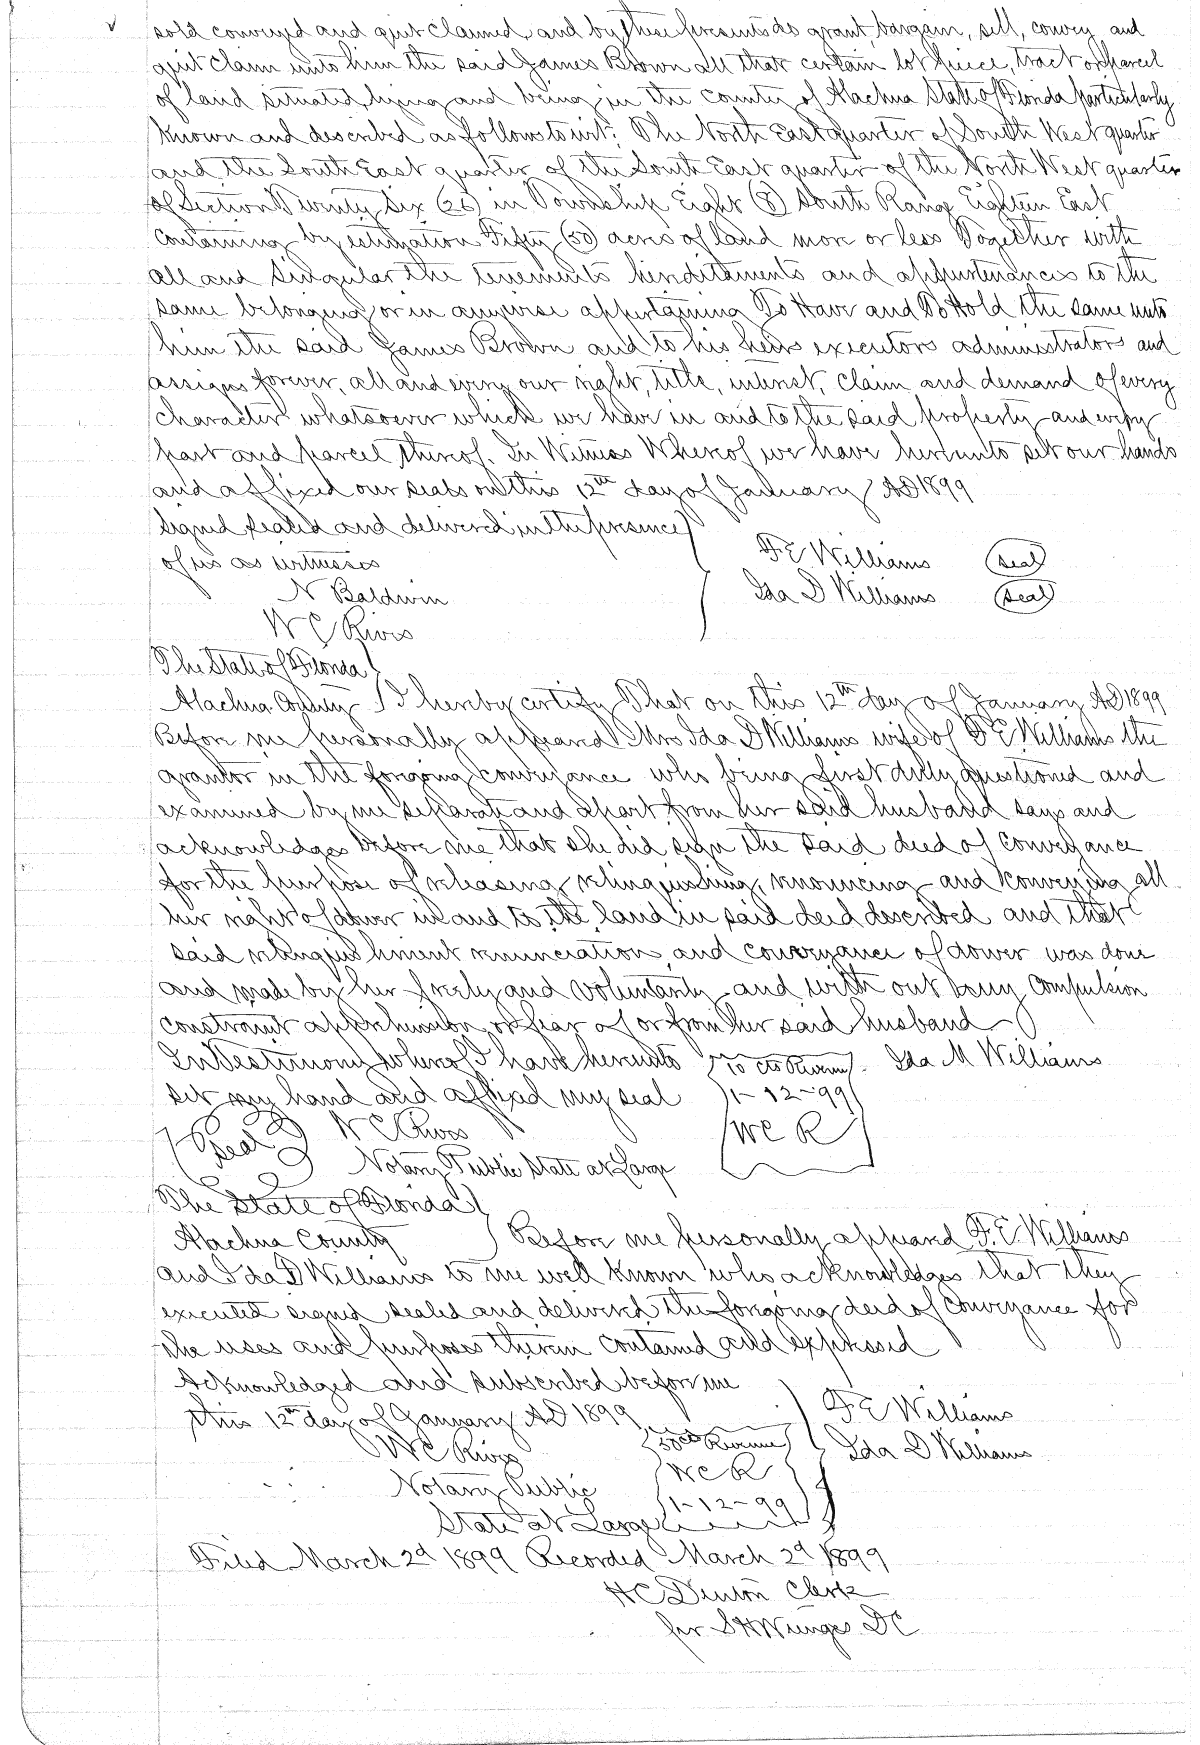 sold conveyed and quit claimed and by these presents do grant, bargain, sell, convey and
quit claim unto him the said James Brown all that certain lot piece, tract or parcel
of land situated, lying and being in the county of Alachua State of Florida particularly
known and described as follows to wit: The North East quarter of South West quarter
and the South East quarter of the South East quarter of the North West quarter
of Section Twenty Six (26) in Township Eight (8) South Range Eighteen East
containing by estimation Fifty (50) acres of land more or less Together with
all and singular the tenements hereditaments and appurtenances to the
same belonging or in anywise appertaining To Have and To Hold the same unto
him the said James Brown and to his heirs executors administrators and
assigns forever, all and every our right, title, interest, claim and demand of every
character whatsoever which we have in and to the said property and every
part and parcel thereof. In Witness Whereof we have hereunto set our hands
and affixed our seals on this 12th day of January AD 1899
Signed sealed and delivered in the presence
of us as witnesses
F E Williams (seal)
N Baldwin
Ida D Williams (seal)
W C Rives
The State of Florida
Alachua County I hereby certify That on this 12th day of January AD 1899
Before me personally appeared Mrs Ida D Williams wife of F E Williams the
grantor in the forgoing conveyance who being first duly questioned and
examined by me separate and apart from her said husband says and
acknowledges before me that she did sign the said deed of conveyance
for the purpose of releasing, relinquishing, renouncing and conveying all
her right of dower in and to the land in said deed described and that
said relinquishment renunciation and conveyance of dower was done
and made by her freely and voluntarily and with out any compulsion
constraint apprehension or fear of or from her said husband
In Testimony whereof I have hereunto
set my hand and affixed my seal
10 cts Revenue
1-12-99
W C R
Ida M Williams
(Seal) W C Rives
Notary Public State at Large
The State of Florida
Alachua County Before me personally appeared F. E. Williams
and Ida D Williams to me well known who acknowledges that they
executed signed sealed and delivered the forgoing deed of conveyance for
the uses and purposes therein contained and expressed
Acknowledged and subscribed before me
this 12th day of January AD 1899
F E Williams
W C Rives
50 cts Revenue
Ida D Williams
Notary Public
W C R
State at Large
1-12-99
Filed March 2d 1899 Recorded March 2d 1899
H C Denton Clerk
for S H Wienges DC